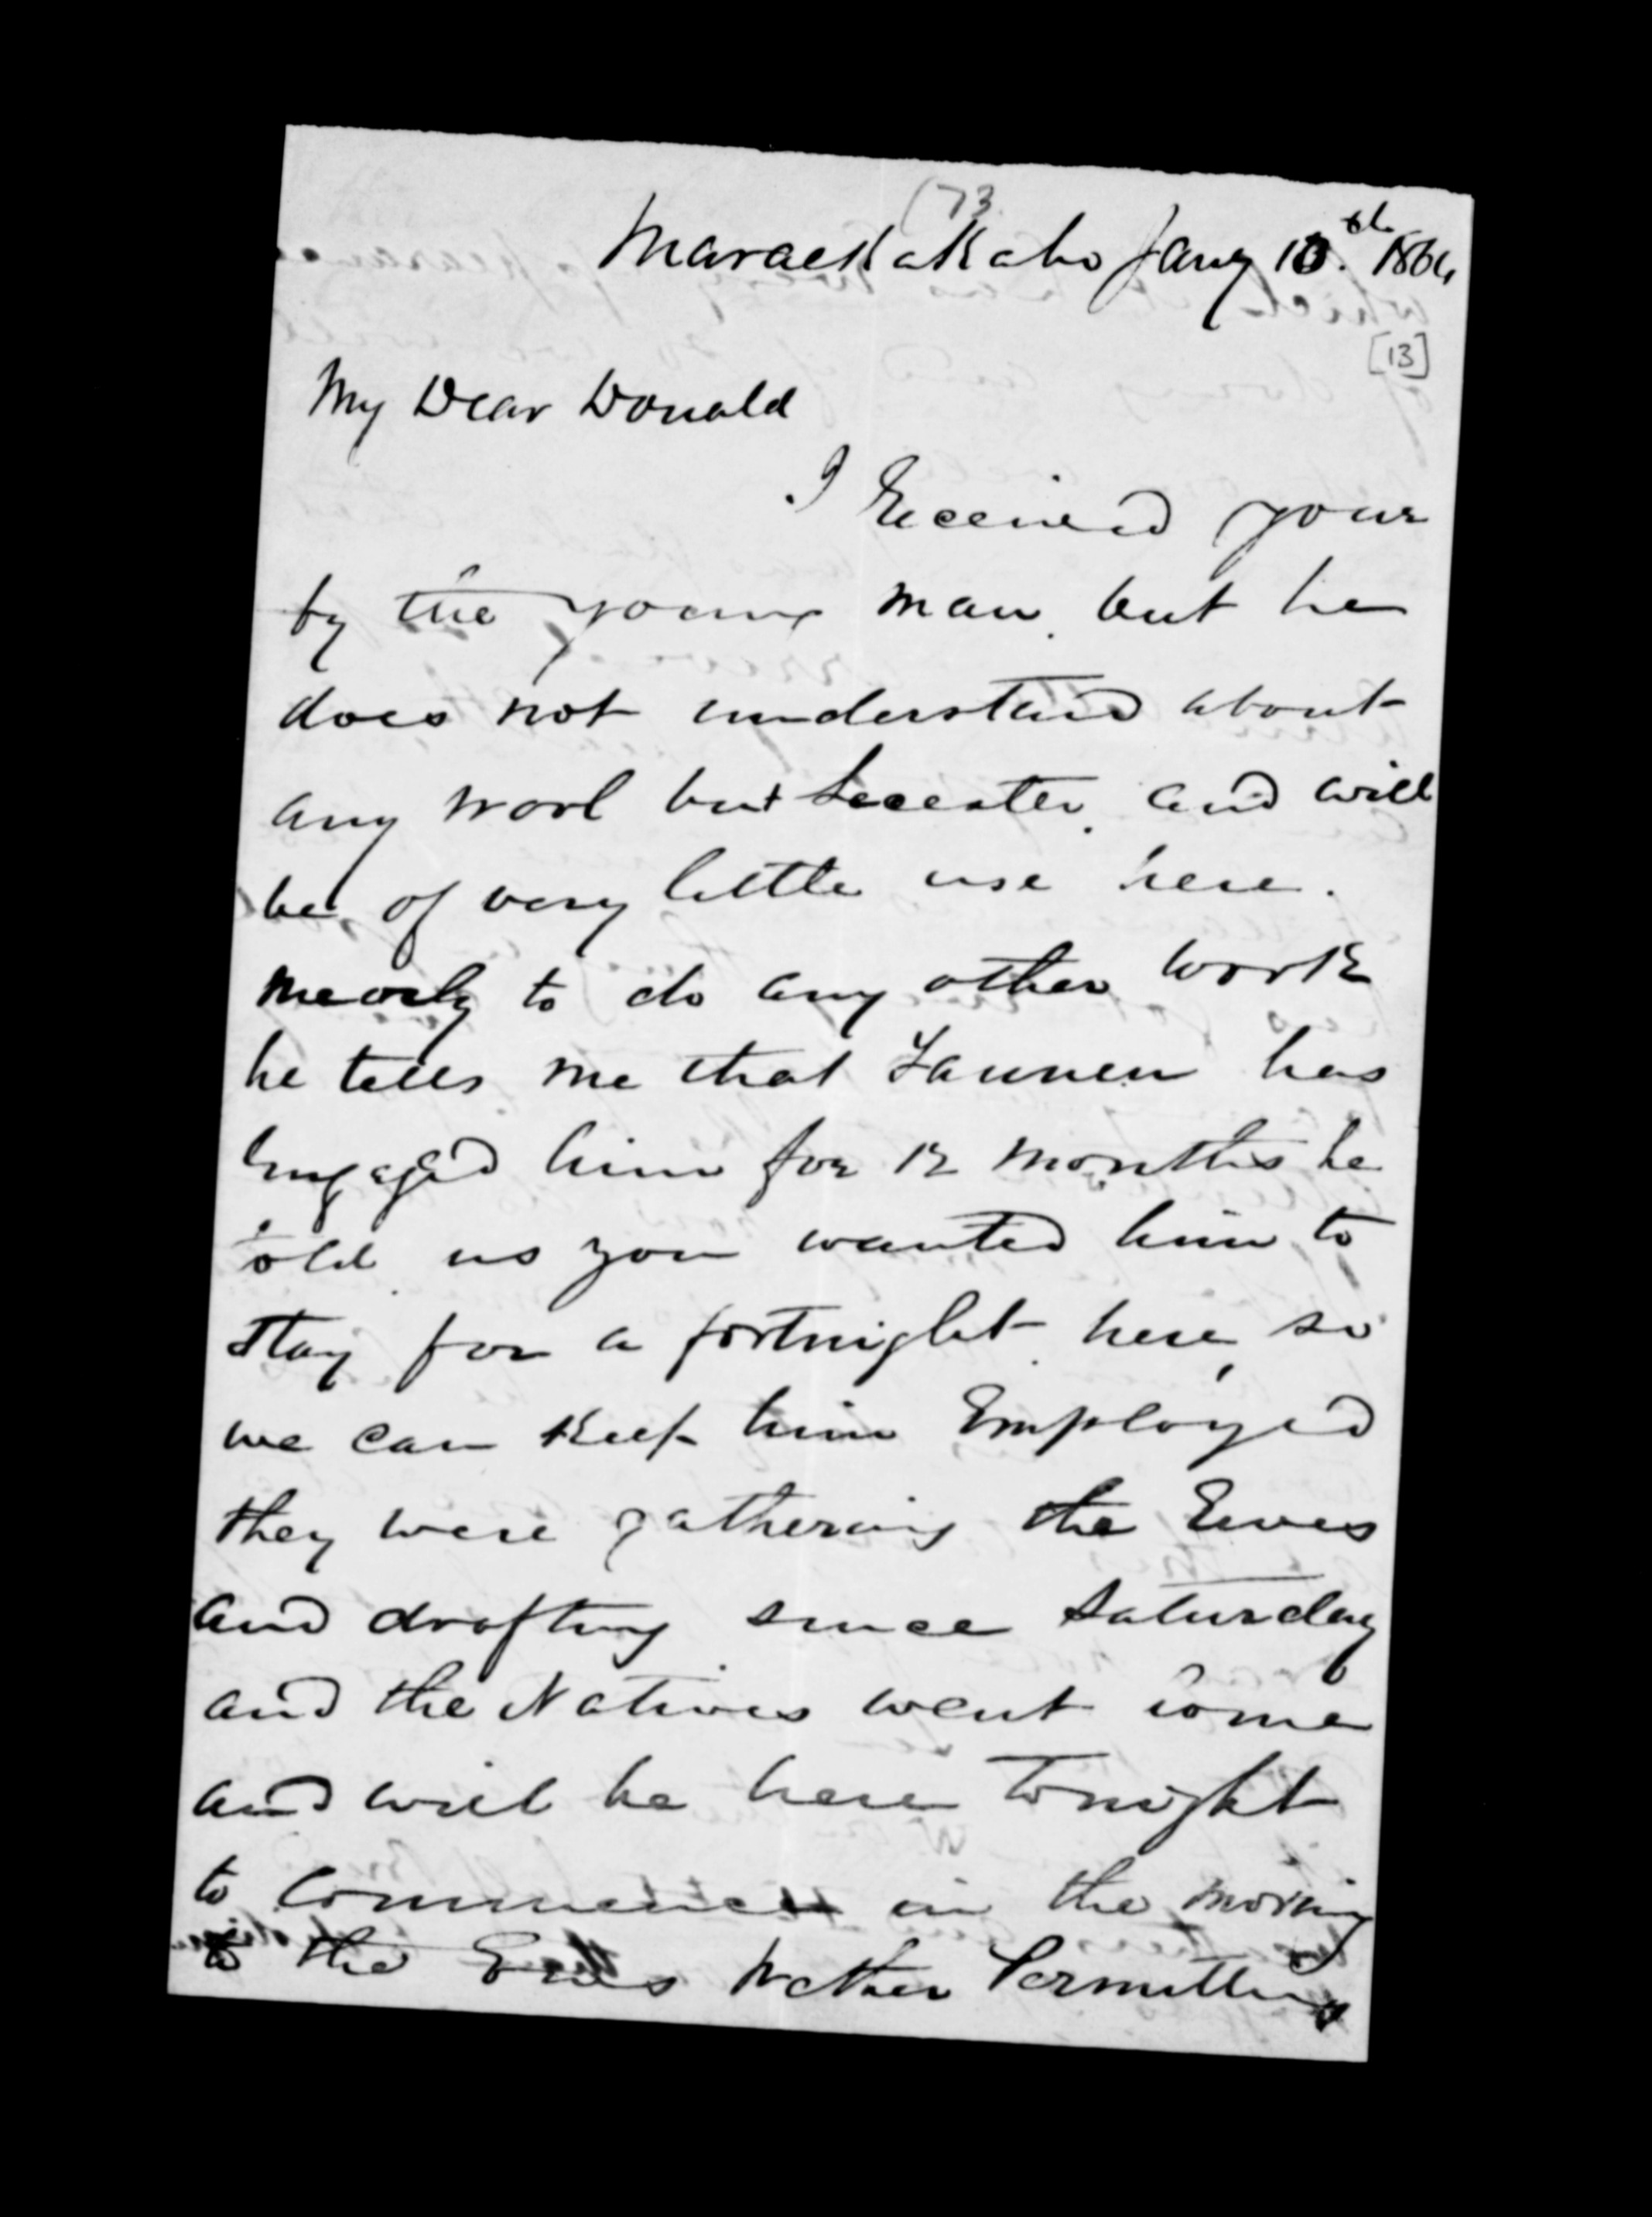 (73.
Maraekakaho Jany 10.th 1864
[13]
My Dear Donald
I Received your
by the young man. but he
does not understand about
any wool but Leecester. and will
be of very little use here.
mearly to do any other work
he tells me that has
Engaged him for 12 months he
told us you wanted him to
stay for a fortnight here, so
we can Keep him Employed
they were gathering the Ewes
and drafting since Saturday
and the Natives went home
and will be here Tonight
to Commence in the morning
to the Ewes Wether Permitting